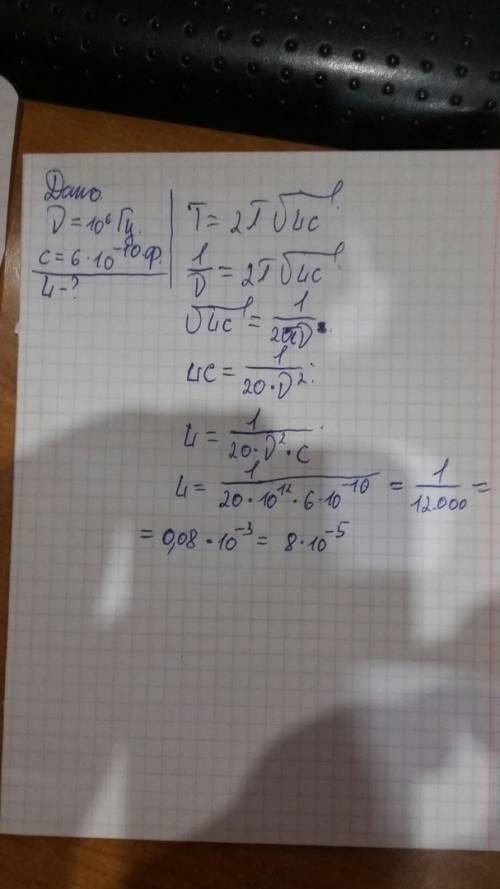 Дано.
D = 10⁶ Гц.
c = 6·10⁻¹⁰ Ф.
L - ?
T = 2π√Lc
1/D = 2π√Lc
√Lc = 1/2πD
Lc = 1/20·D²
L = 1/20·D²·c
L = 1/20·10¹²·6·10⁻¹⁰ = 1/12.000 =
= 0,08·10⁻³ = 8·10⁻⁵